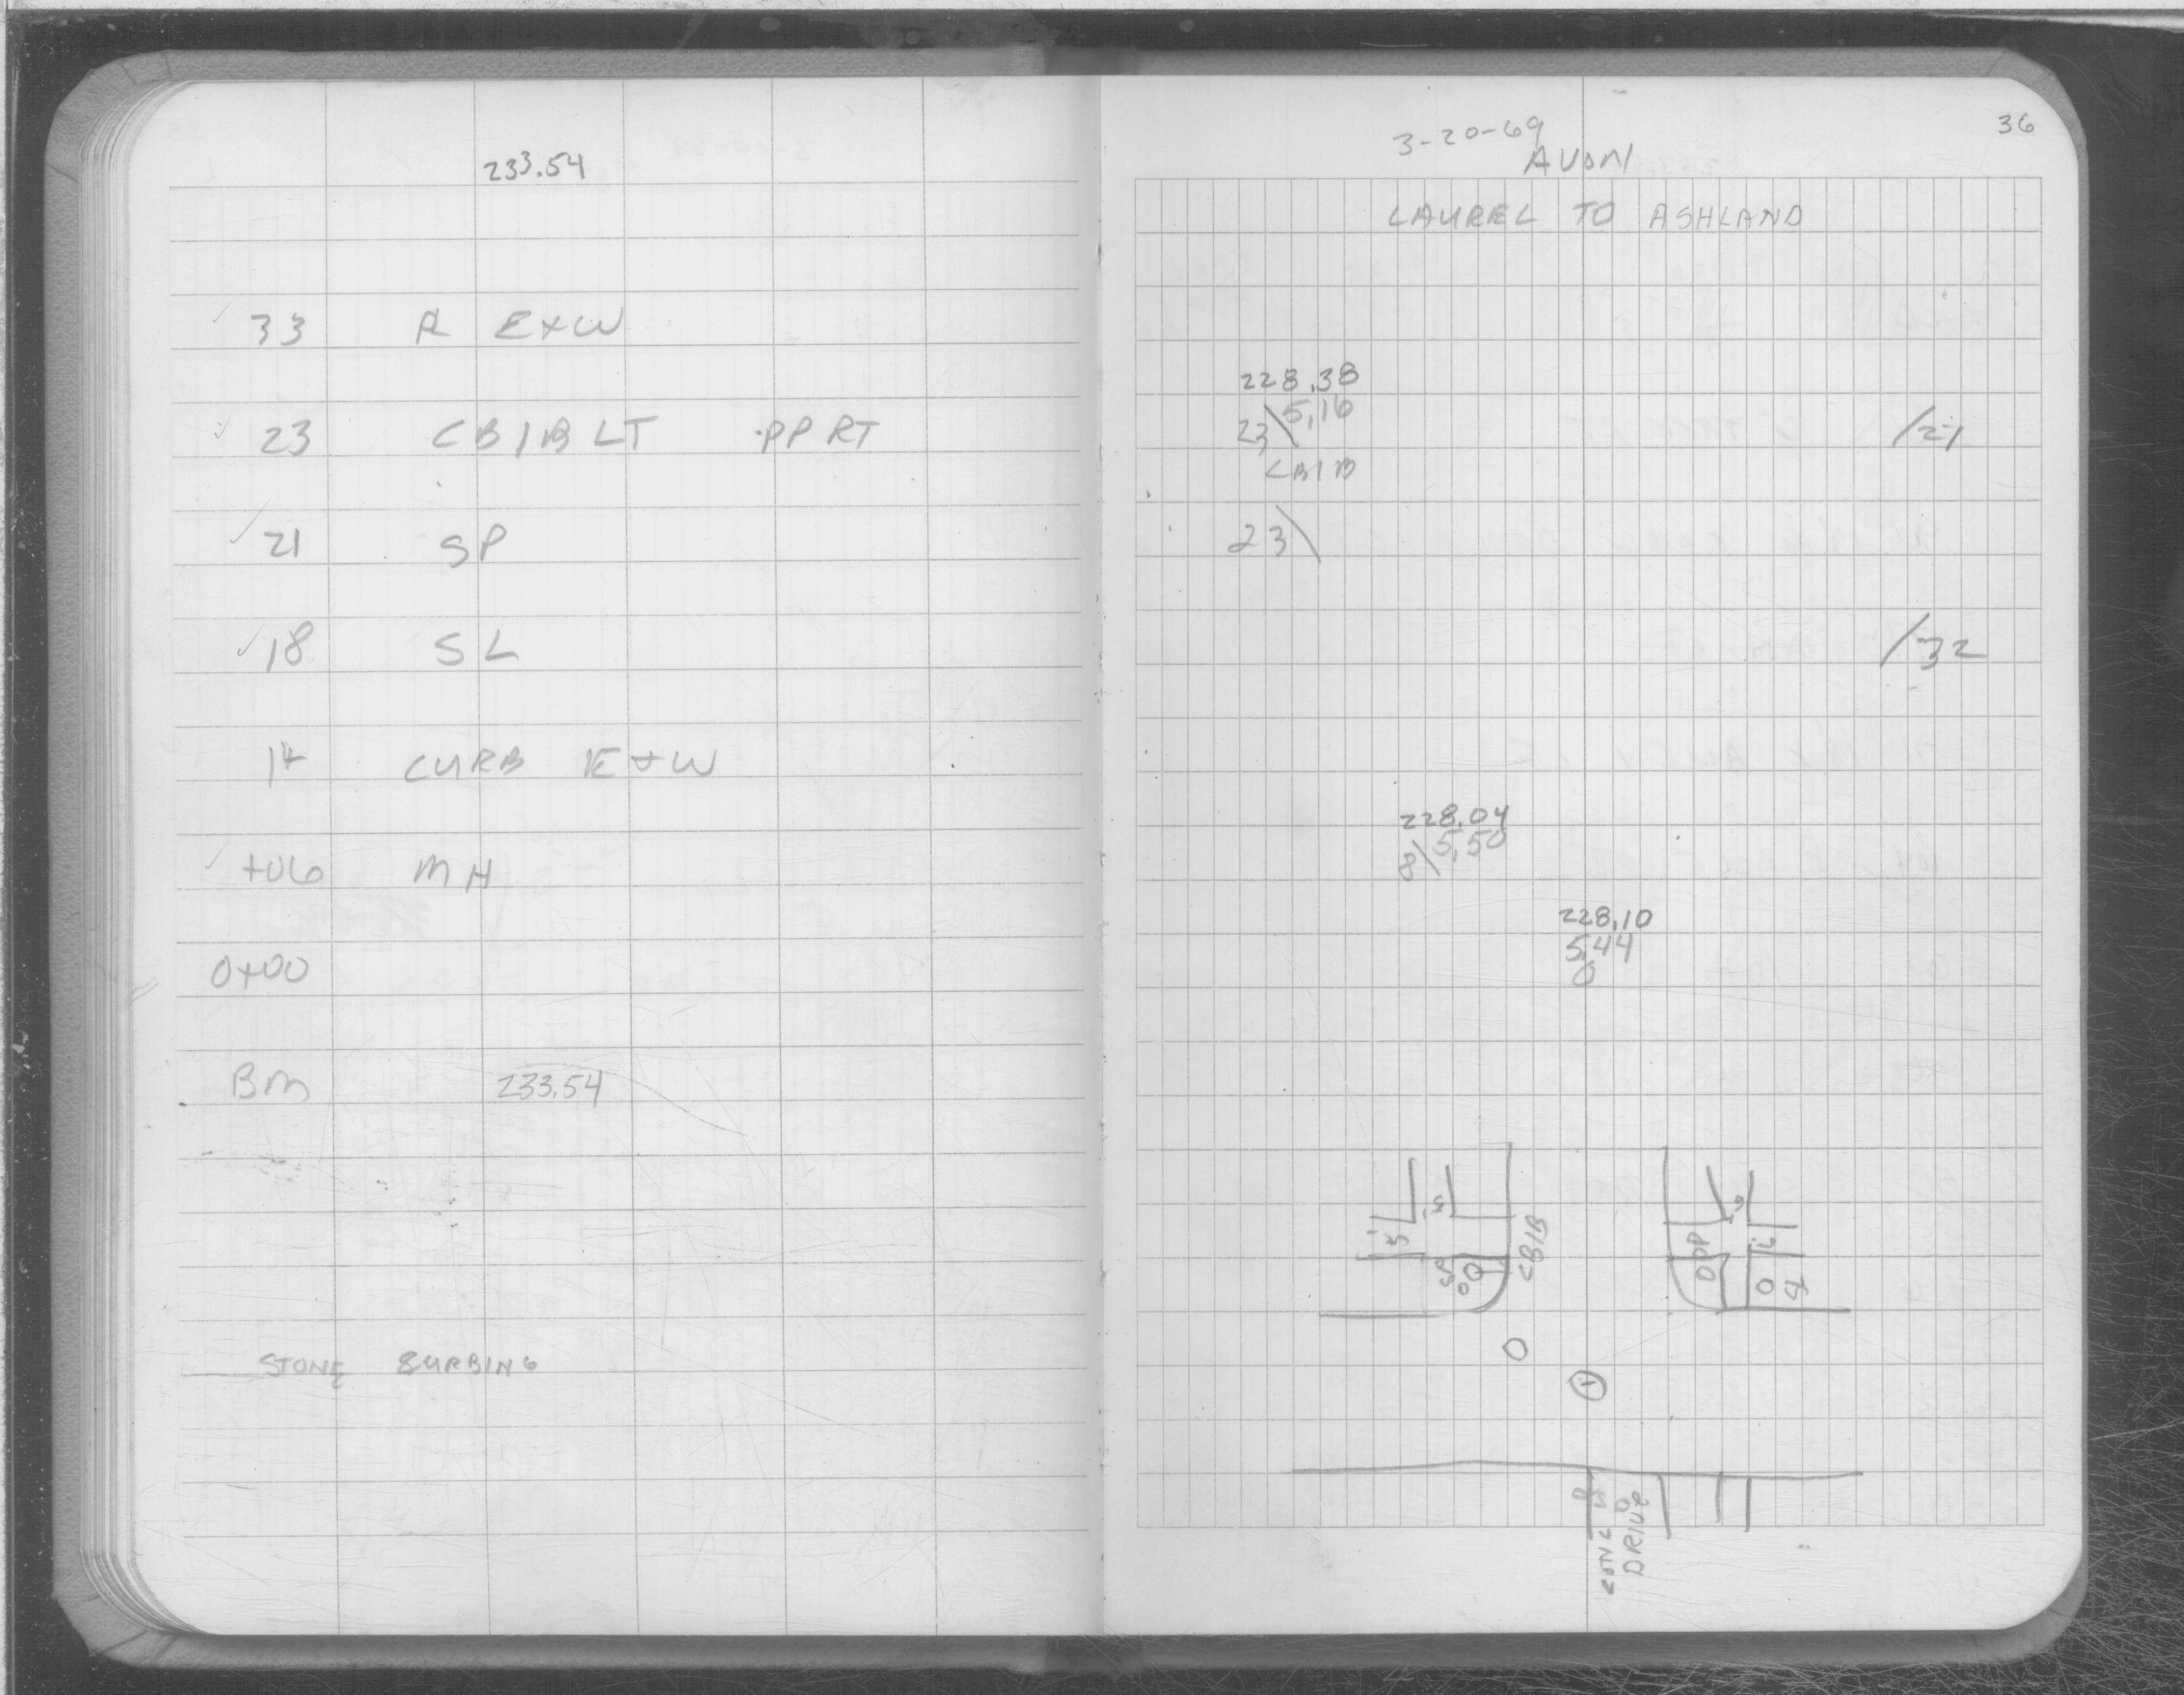 233.54
33 R E+W
23 CB1B LT PP RT
21 SP
18 SL
14 CURB E+W
+06 MH
0+00
BM 233.54
STONE CURBING
36
3-20-69
AVON
LAUREL TO ASHLAND
228.38
23\5.16 /21
CB1B
23\
/32
228.04
8\5.50
228.10
5.44
0
5' 5' SP CB1B
PP
CONC
DRIVE